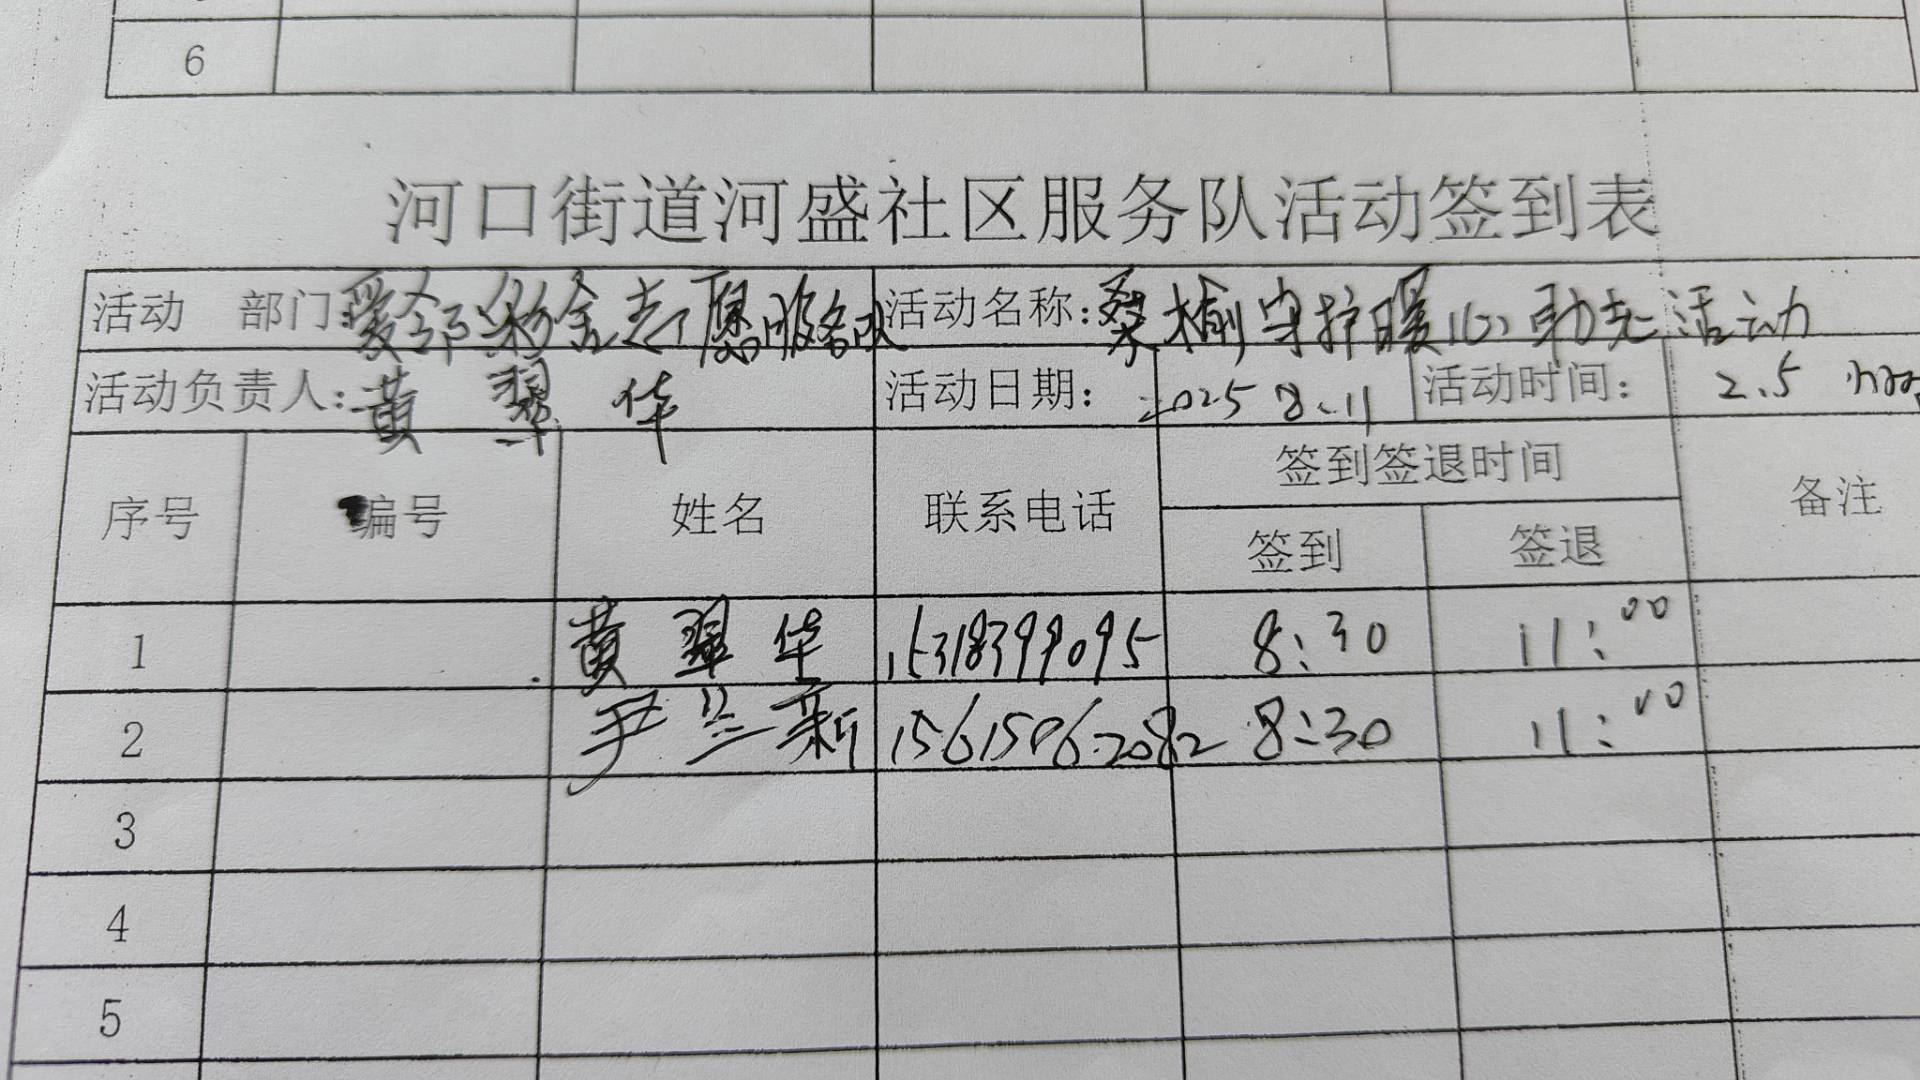 6
河口街道河盛社区服务队活动签到表
活动 部门: 爱邻彩金志愿服务队 活动名称: 桑榆守护暖心助老活动
活动负责人: 黄翠华 活动日期: 2025 8.11 活动时间: 2.5
序号 编号 姓名 联系电话 签到签退时间 备注
签到 签退
1 黄翠华 15318399095 8:30 11:00
2 尹兰新 15615062082 8:30 11:00
3
4
5